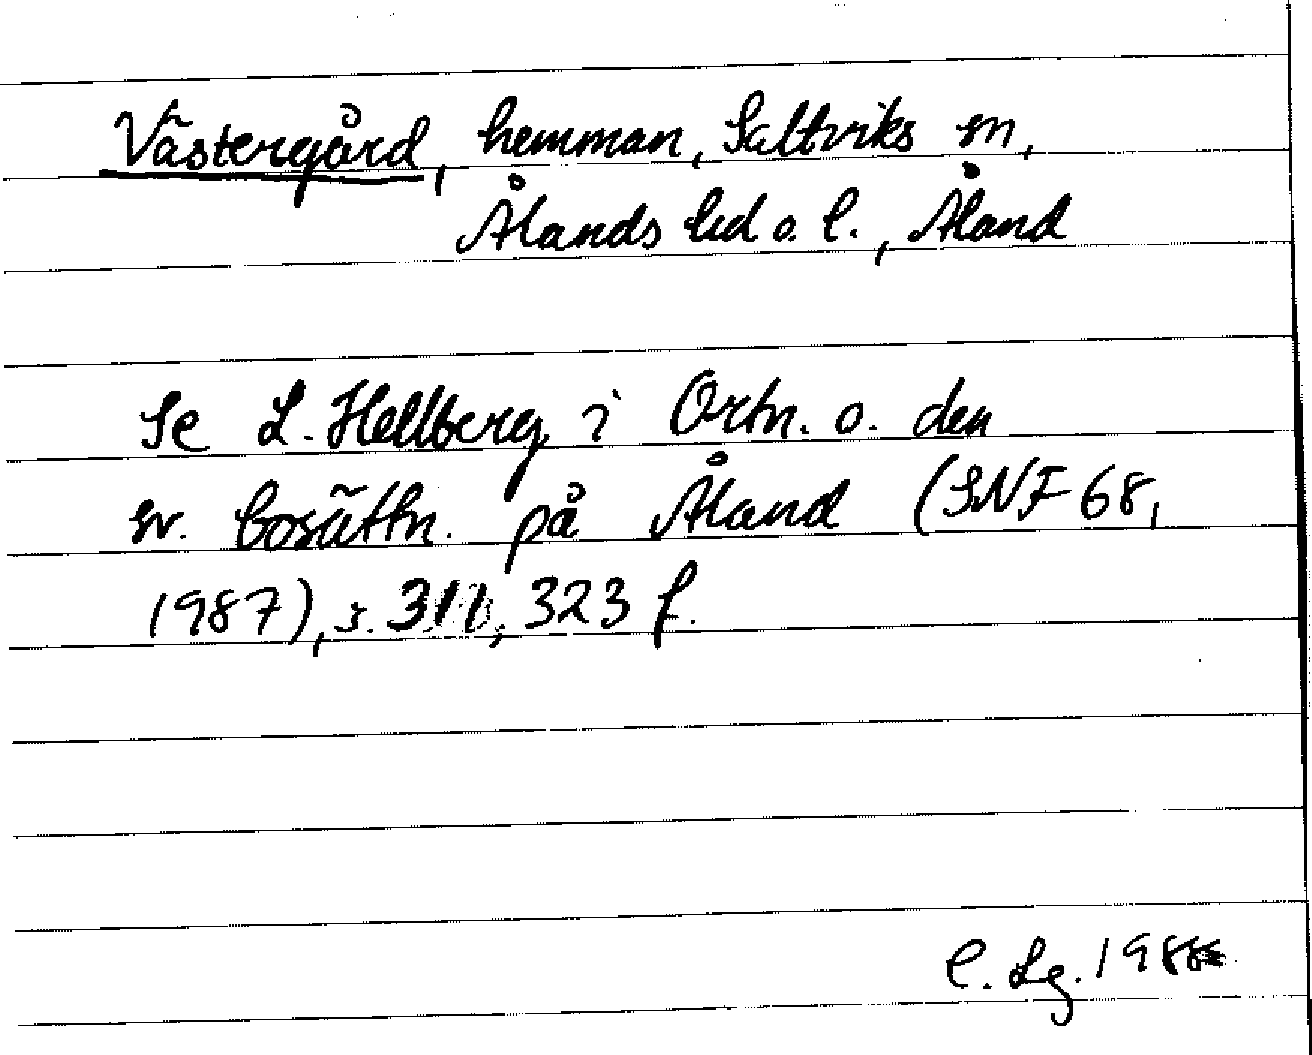 Västergård, hemman, Saltviks sn,
Ålands lid o. l., Åland
Se L. Hellberg i Ortn. o. den
sv. bosättn. på Åland (SNF 68,
1987), s. 323 f.
C. Lg. 1988